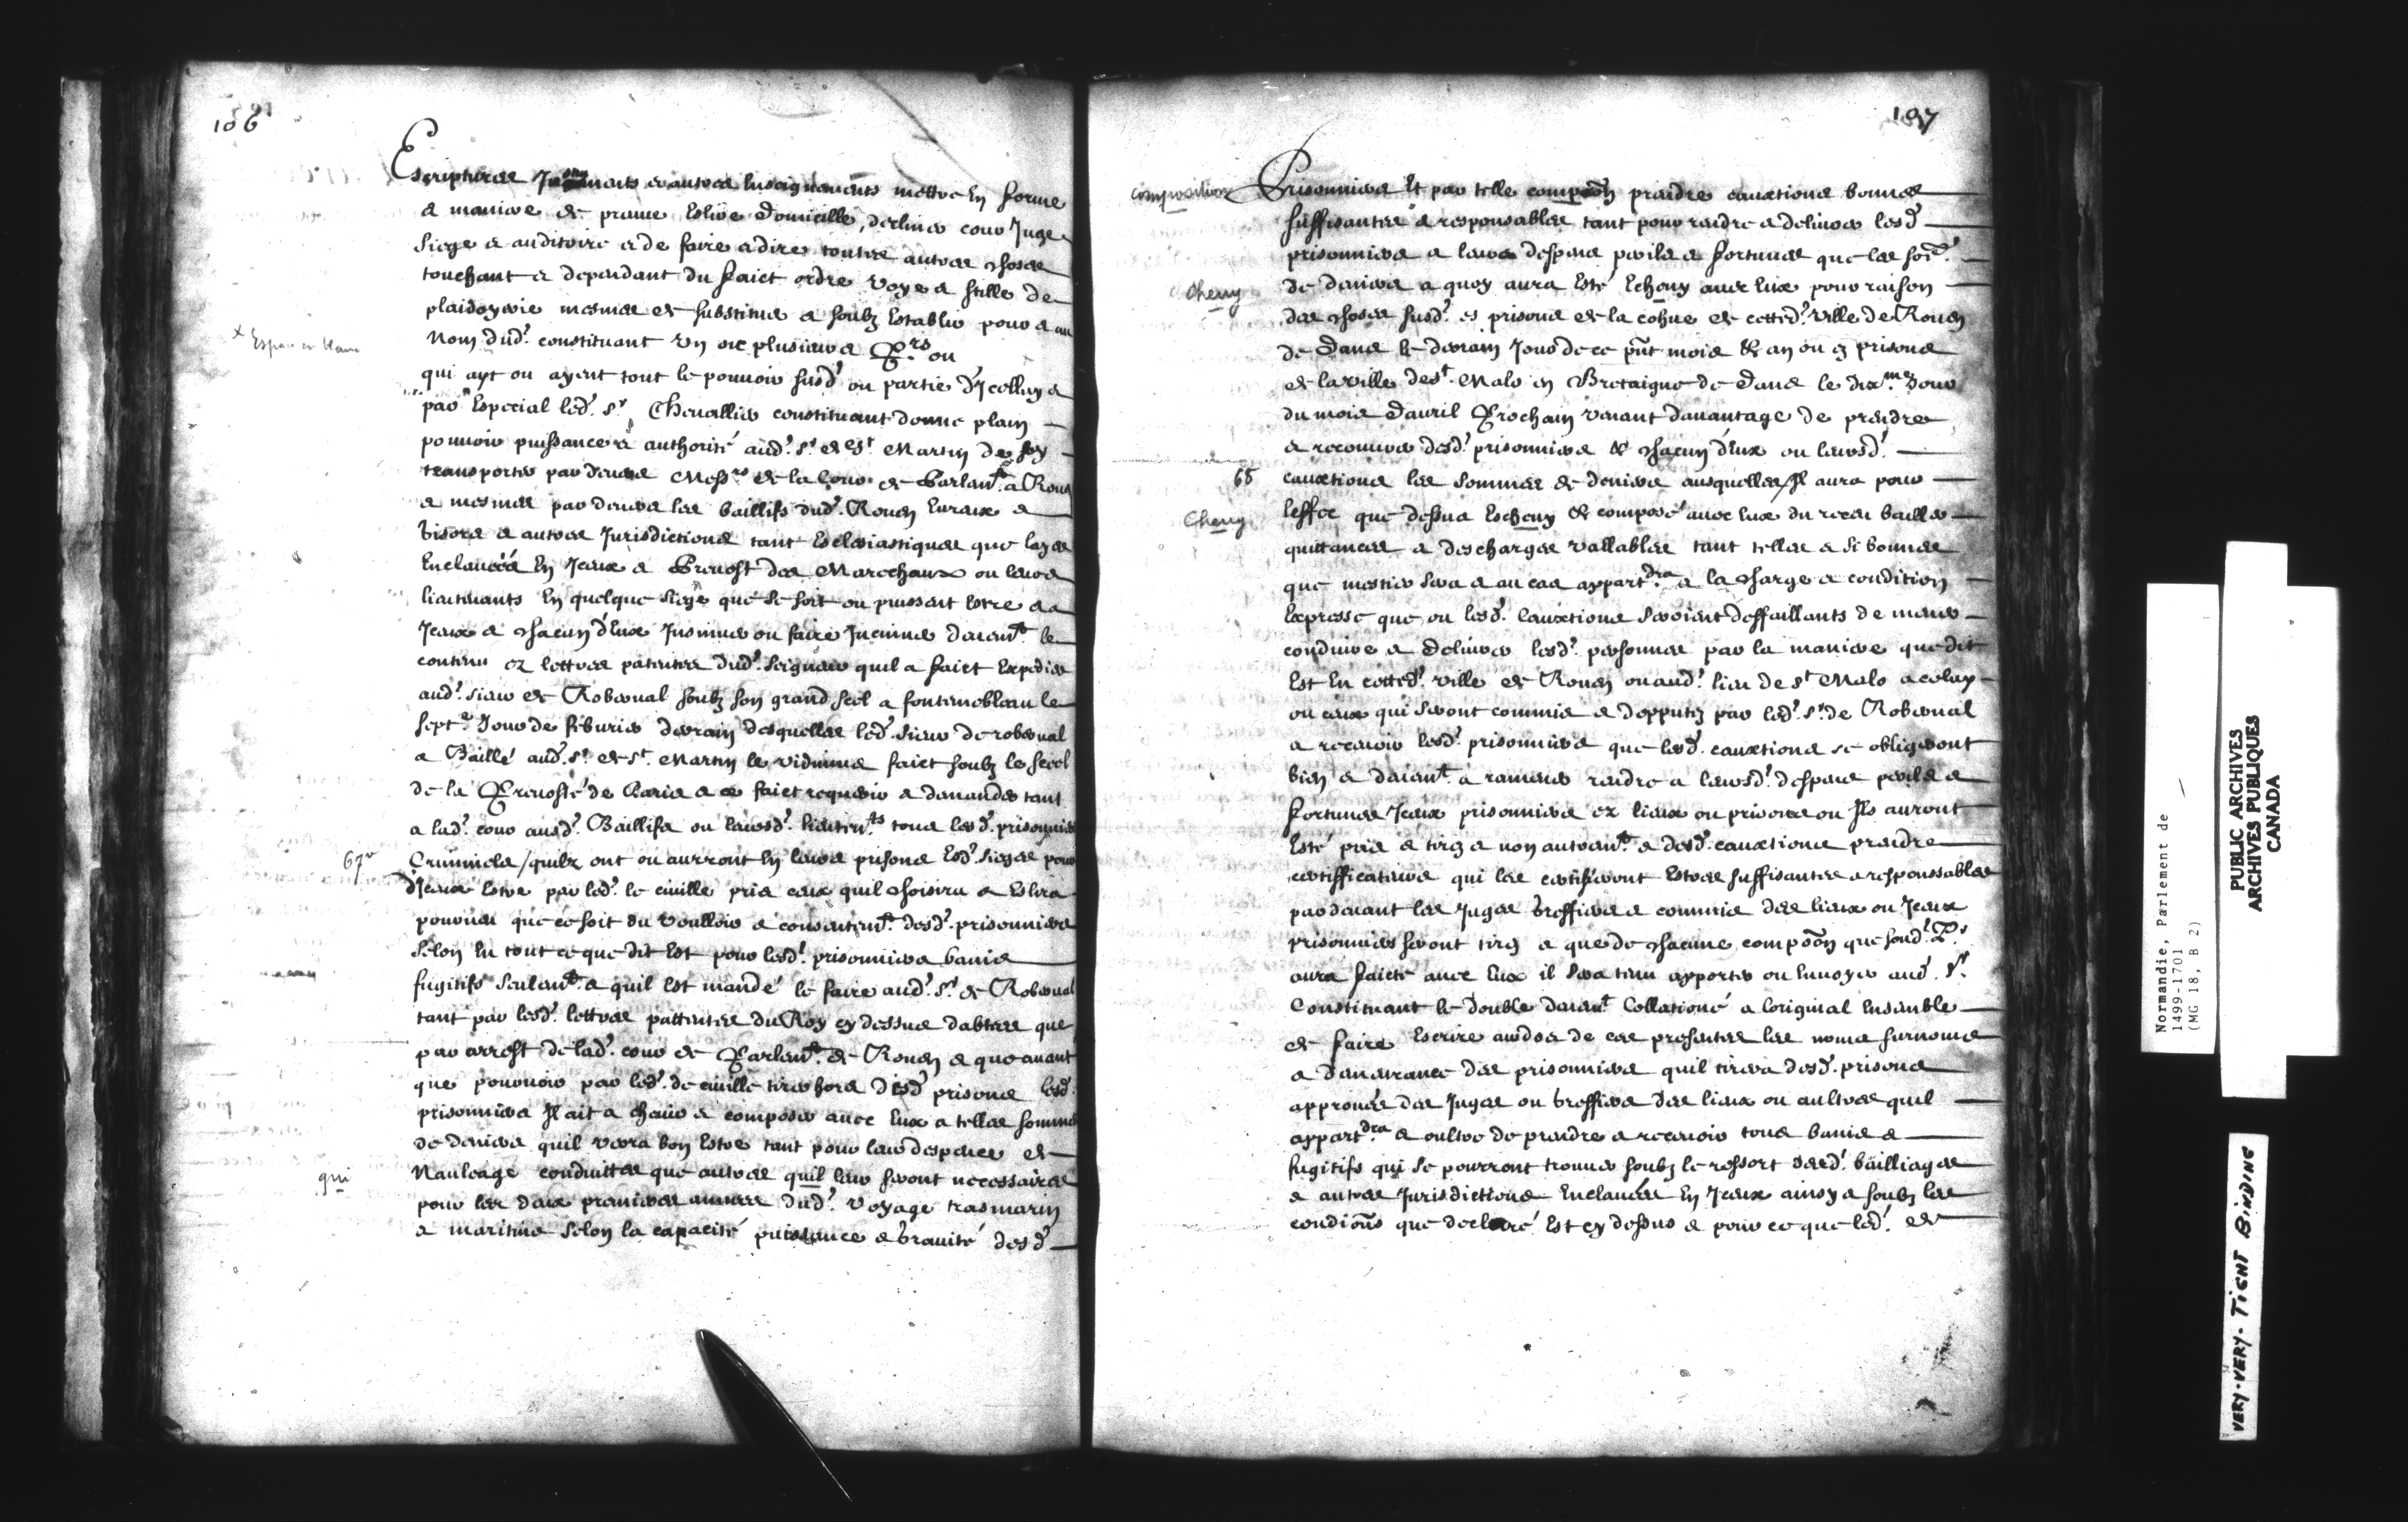 186
Escriptures Instruments et autres Enseignements mettre En forme
et maniere de preuve Eslire Domicille, decliner cour Juge
Siege et auditoire et de faire et dire toutes autres choses
touchant et dependant du faict ordre voye et stille de
plaidoyerie mesmes de substitue et soubz Establir pour et au
x Espace en blanc
Nom dud. constituant un ou plusieurs Prs ou
qui ayt ou ayent tout le pouvoir susd. ou partie d'Icelluy et
par Especial led. sr Chevallier constituant donne plain
pouvoir puissance et authorité aud. sr de st Martin de soy
transporter par devers Messrs de la Cour de Parlemt a Rouen
et mesmes par devers les baillifs dud. Rouen Evreux et
Gisors et autres Jurisdictions tant Esclesiastiques que layes
Enclavées En Iceux et Prevost des Marechaux ou leurs
lieutenants En quelque siege que se soit ou puissent Estre et a
Iceux et chacun d'Eux Insinuer ou faire Insinuer deuemt le
contenu ez lettres patentes dud. Seigneur quil a faict Expedier
aud. sieur de Roberval soubz son grand seel a fontenebleau le
septe Jour de feburier dernier desquelles led. sieur de roberval
a Baillé aud. sr de st Martin le vidimus faict soubz le seeel
de la Prevosté de Paris et ce faict requerir et demander tant
a lad. cour ausd. Baillifs ou leursd. lieutents tous lesd. prisonniers
67v
Criminels / quilz ont ou aurront En leurs prisons Esd. sieges pour
d'Iceux Estre par led. de civille pris ceux quil choisira et Eslira
pourveu que ce soit du voulloir et consentemt desd. prisonniers
selon En tout ce que dit Est pour lesd. prisonniers banis
fugitifs seulemt et quil est mandé le faire aud. sr de Roberval
tant par lesd. lettres pattentes du Roy cy dessus dabtees que
par arrest de lad. cour de Parlemt de Rouen et que avant
que pouvoir par led. de civille tirer hors desd. prisons lesd.
prisonniers Il ait a chevir et composer avec Eux a telles sommes
de deniers quil verra bon Estre tant pour leur despence et
qui
Nauleage conduittes que autres quil leur seront necessaires
pour les deux premieres annees dud. voyage trasmarin
et maritime selon la capacité puissance et gravité desd.
197
composition
Prisonniers Et par telle compoon prendre cauxtions bonnes
suffisantes et responsables tant pour rendre et delivrer lesd.
prisonniers a leurs despens perils et fortunes que les sord.
Cheuy
de deniers a quoy aura Esté Echeuy avec Eux pour raison
des choses susd. es prisons de la cohue de cetted. ville de Rouen
de dans le dernier Jour de ce pnt mois & an ou es prisons
de la ville de st Malo en Bretaigne de dans le dixme Jour
du mois d'avril Prochain venant davantage de prendre
et recouvrer desd. prisonniers & chacun d'Eux ou leursd.
68
cauxtions les sommes de deniers ausquelles / Il aura pour
Cheuy
leffec que dessus Escheuy & composé avec Eux du receu bailler
quittances et descharges vallables tant telles et si bonnes
que mestier sera et au cas appartdra et a la charge et condition
Expresse que ou lesd. Cauxtions seroient deffaillants de mener
conduire et delivrer lesd. personnes par la maniere que dit
Est En cetted. ville de Rouen ou aud. lieu de st Malo a celuy
ou ceux qui seront commis et depputez par led. sr de Roberval
a recevoir lesd. prisonniers que lesd. cauxtions se obligeront
bien et deuemt a ramener rendre a leursd. despens perils et
fortunes Iceux prisonniers ez lieux ou prisons ou Ils auront
Esté pris et tirez et non autremt et desd. cauxtions prendre
certifficateurs qui les certifieront Estres suffisantes et responssables
par devant les Juges greffiers et commis des lieux ou Iceux
prisonniers seront tirez et que de chacune compoon que sond. Pr
aura faicte avec Eux il sera tenu apporter ou Envoyer aud. sr
Constituant le double deuemt Collationé a loriginal Ensemble
de faire Escrire audos de ces presentes les noms surnoms
et demeurance des prisonniers quil tirera desd. prisons
approuvés des Juges ou greffiers des lieux ou aultres quil
appartdra et oultre de prendre et recevoir tous banis et
fugitifs qui se pourront trouver soubz le ressort desd. bailliages
et autres Jurisdictions Enclavées En Iceux ainsy et soubz les
condions que declaré Est cy dessus et pour ce que led. de
Normandie, Parlement de
1499-1701
(MG 18, B 2)
PUBLIC ARCHIVES
ARCHIVES PUBLIQUES
CANADA
VERY-VERY-TIGHT BINDING